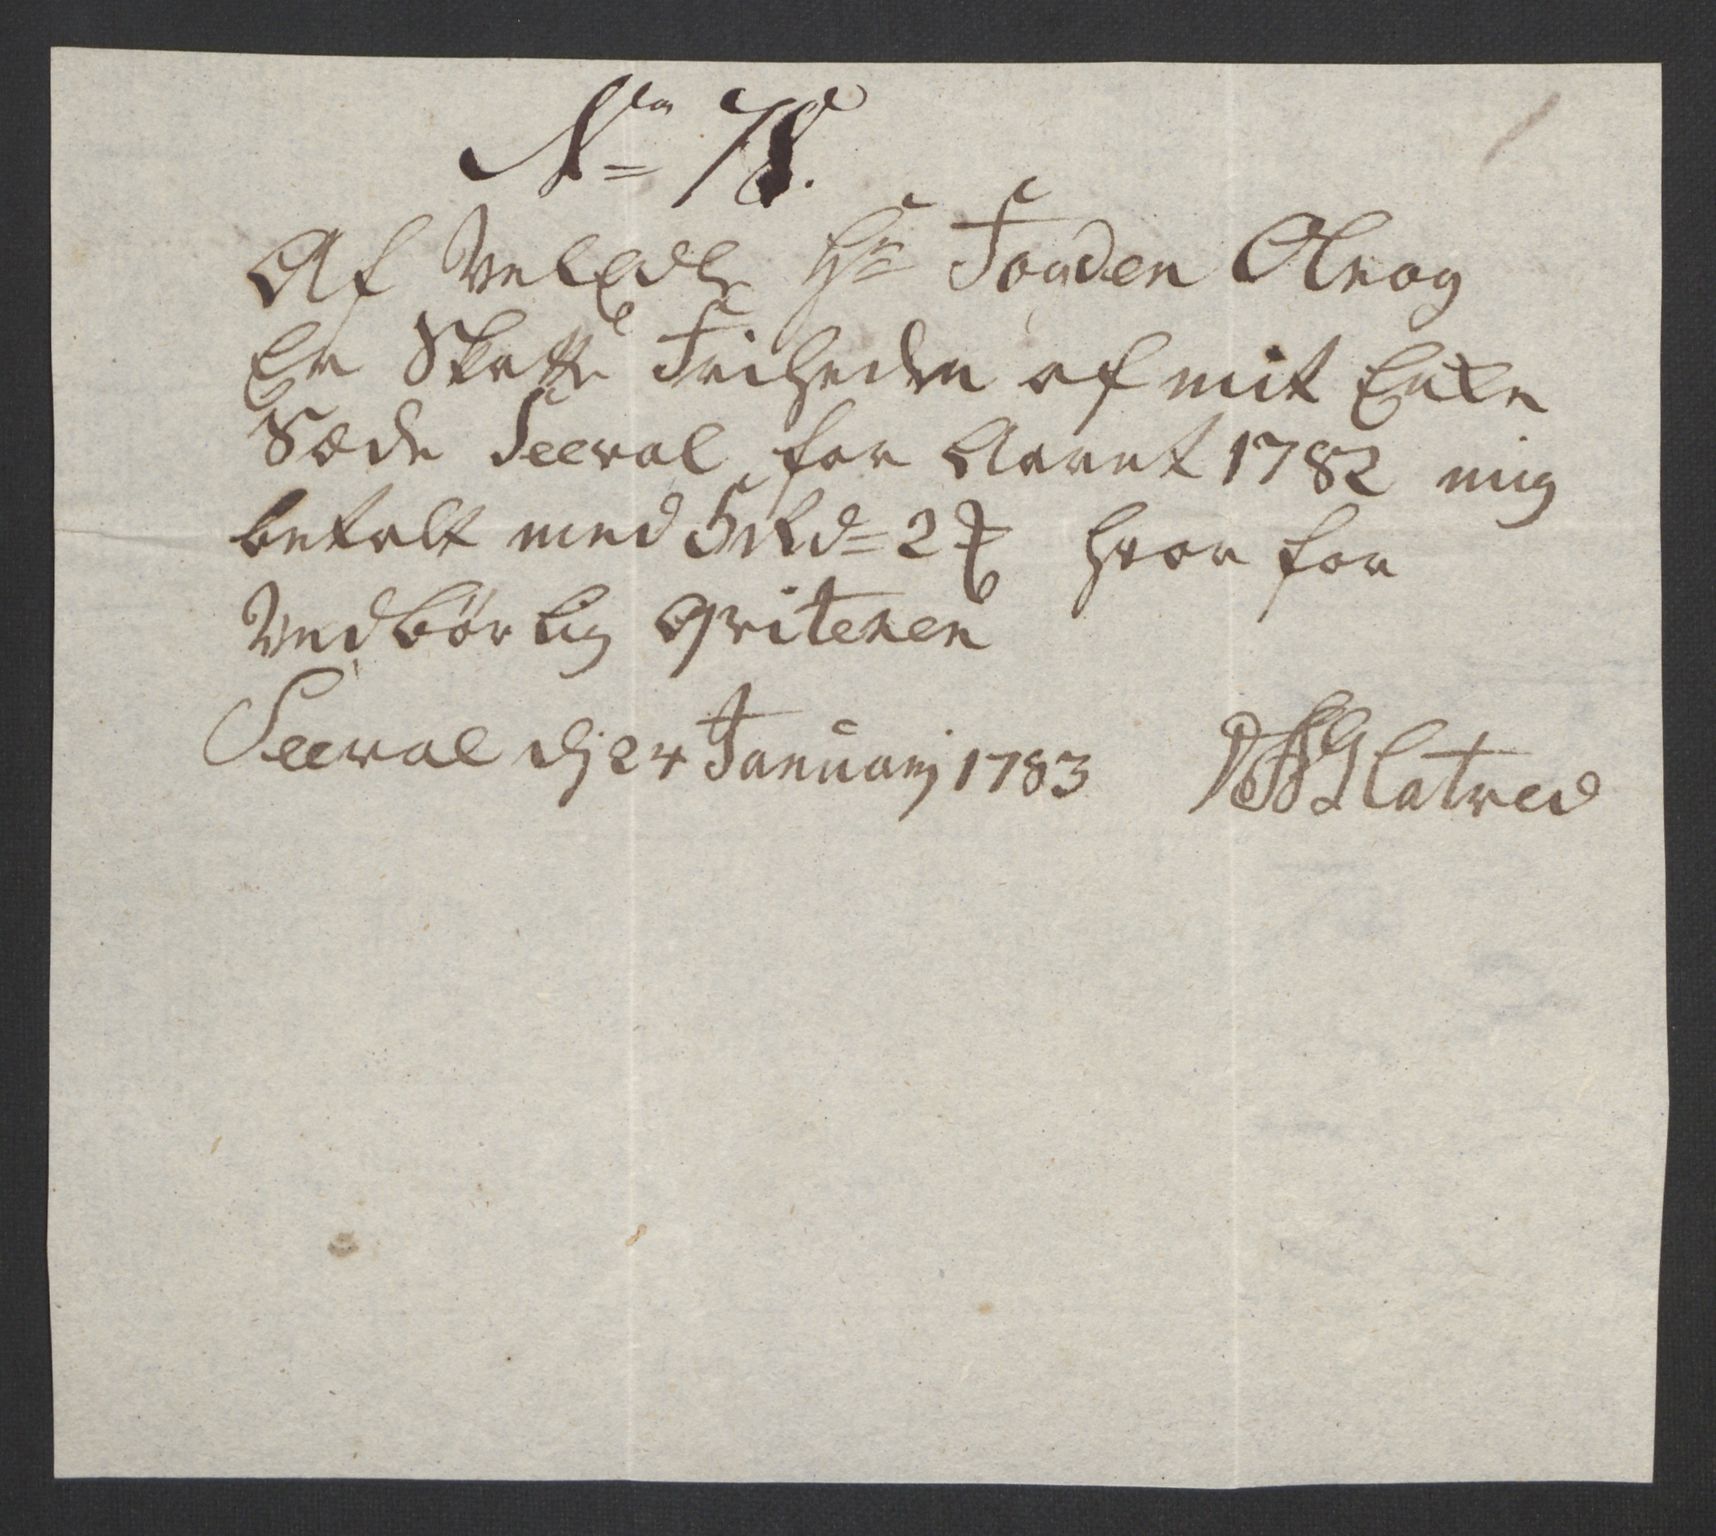 No 78.
Af VelEdle Hr Fogden Olrog
Er Skatte Friheden af mit Enke
Sæde Seeval for Aaret 1782 mig
betalt med 5 Rd = 2 ß hvor for
Vedbørlig Qviterer
Seeval dj 24 Januarij 1783 Slatred